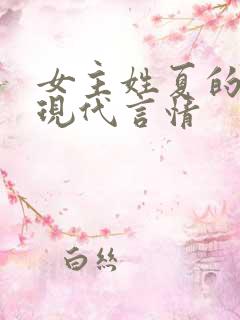 女主姓夏的
現代言情
白絲